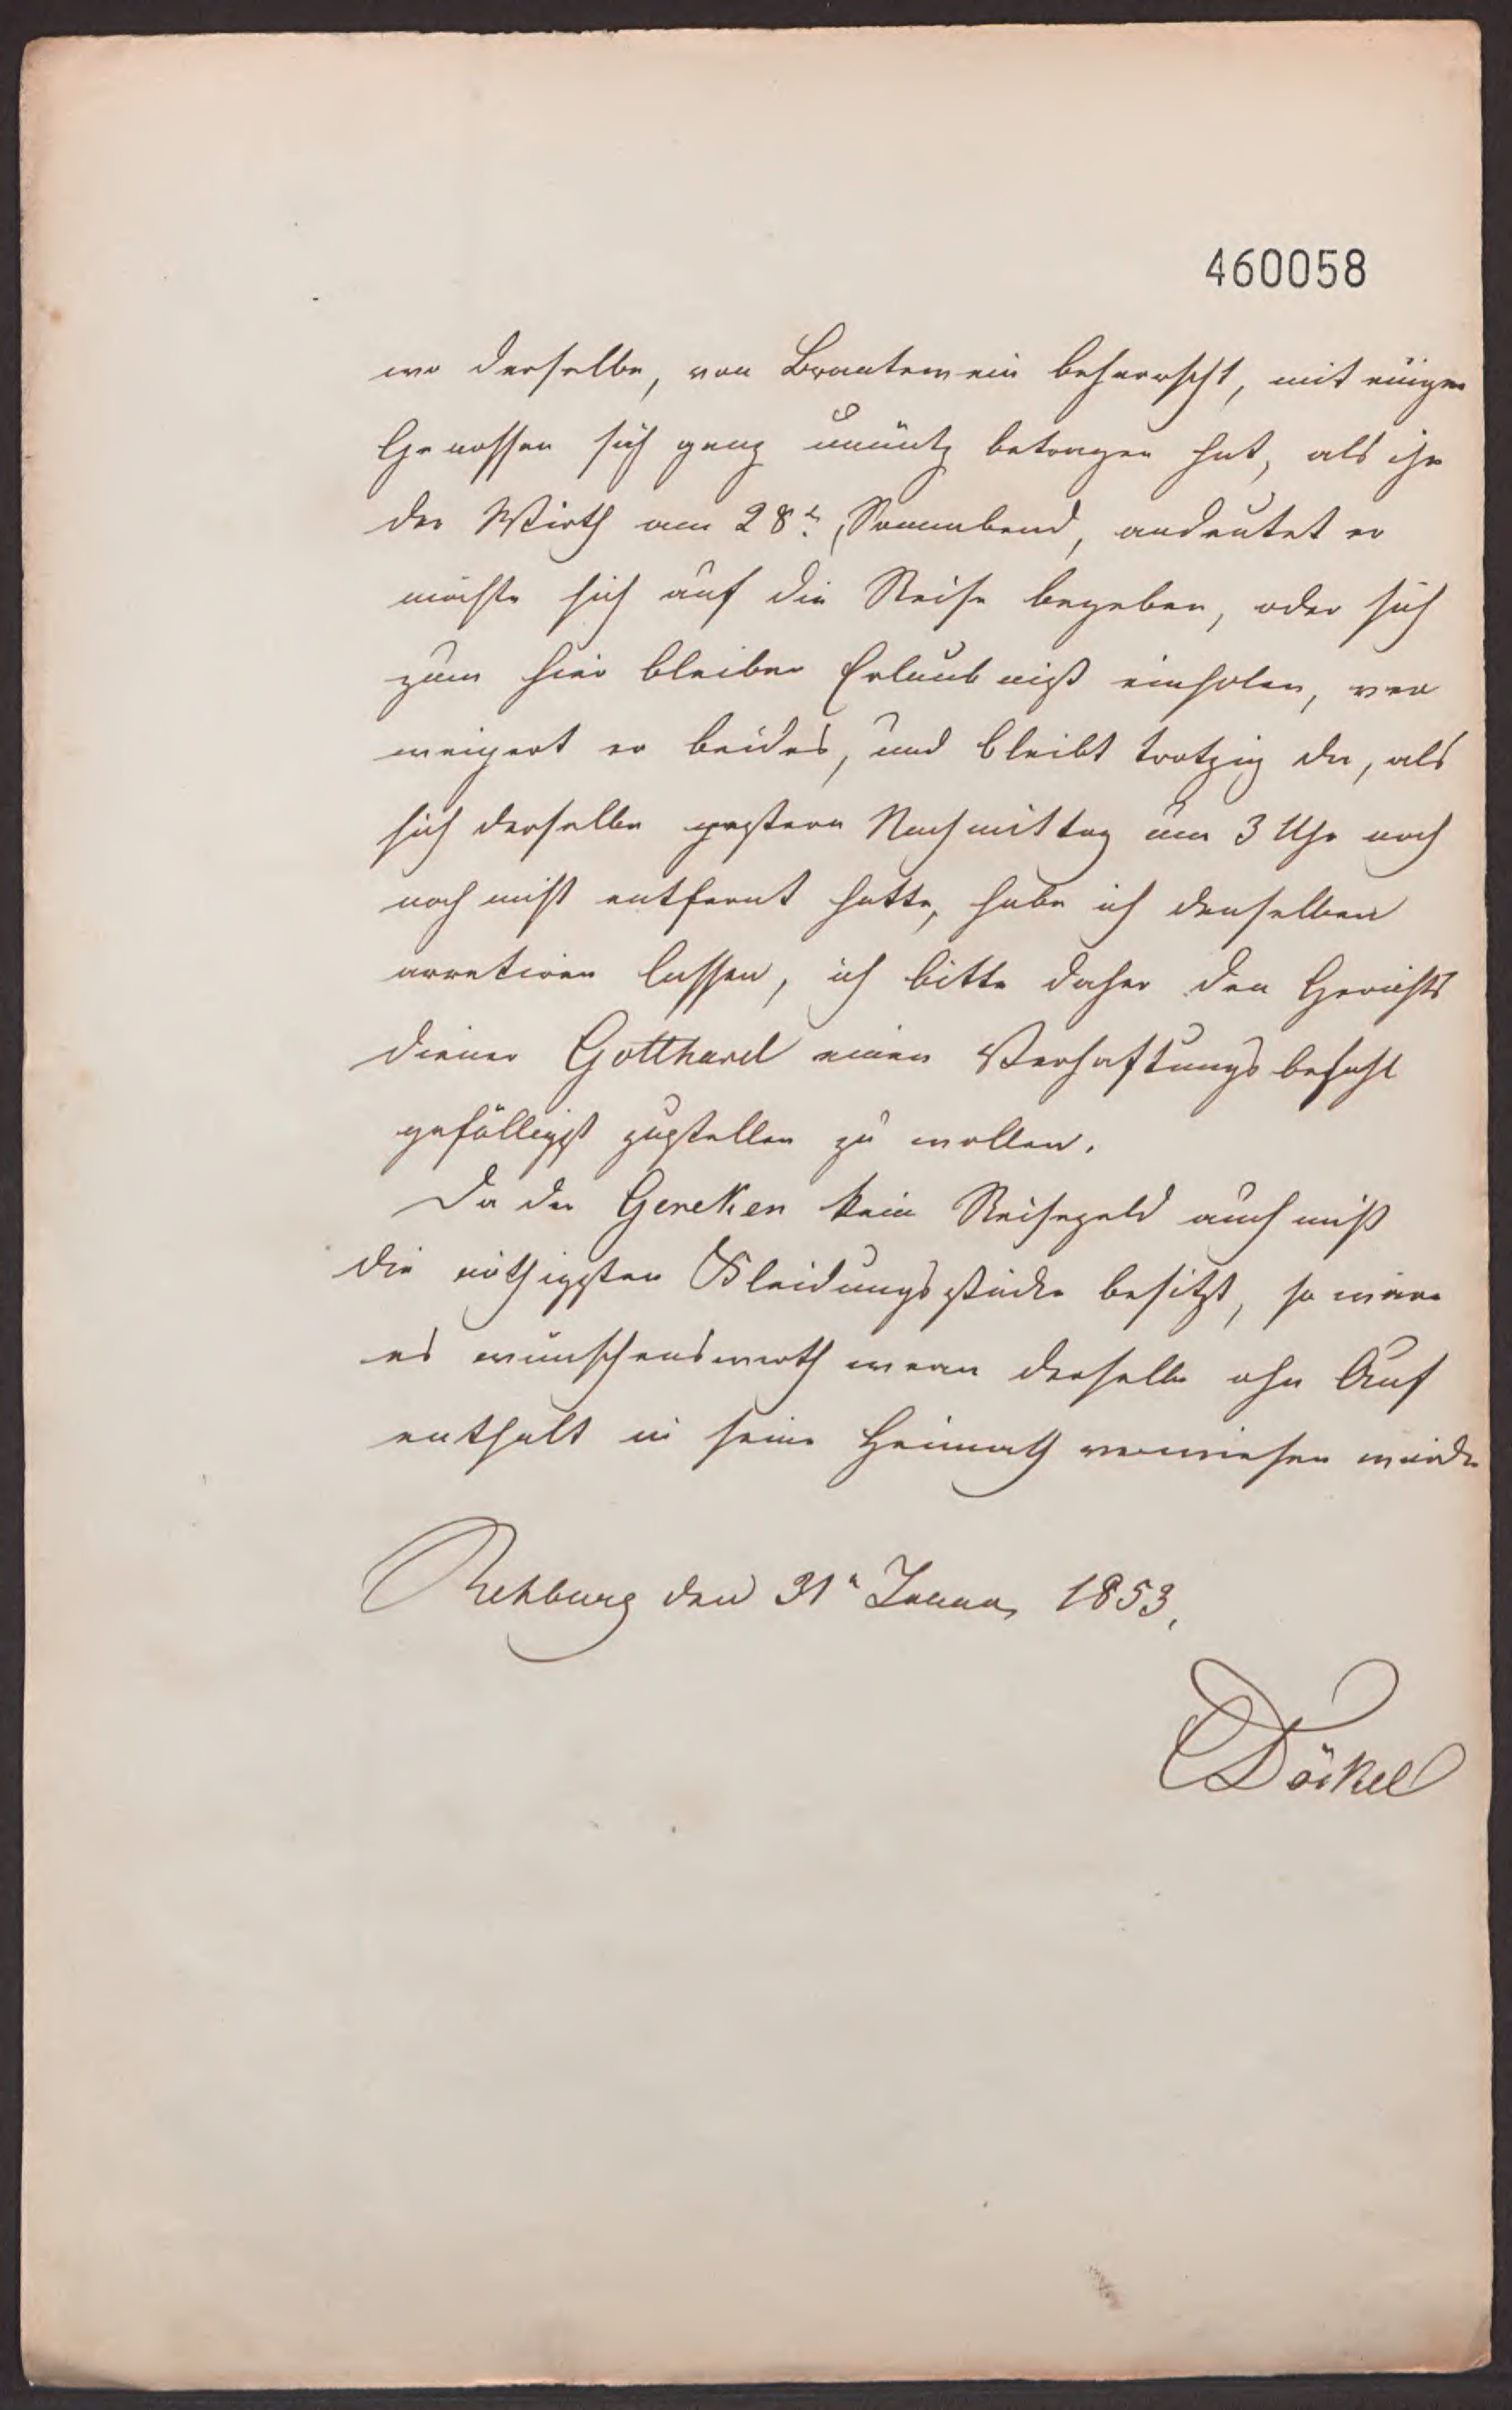 460058
wo derselbe, von Brantewein beherrscht, mit einigen
Genossen sich ganz unnütz betragen hat, als ihn
der Wirth am 28t. Sonnabend, andeutet er
möchte sich auf die Reise begeben, oder sich
zum hier bleiben Erlaubniß einholen, ver
weigert er beides, und bleibt trotzig da, als
sich derselbe gestern Nachmittag um 3 Uhr noch
noch nicht entfernt hatte, habe ich denselben
arretiren lassen, ich bitte daher den Gerichts
diener Gotthard einen Verhaftungsbefehl
gefälligst zustellen zu wollen.
Da der Gereken kein Reisegeld auch nicht
die nöthigsten Kleidungsstücke besitzt, so wäre
es wünschenswerth wenn derselbe ohne Auf
enthalt in seine Heimath verwiesen würde
Rehburg den 31n Januar 1853.
Döckel